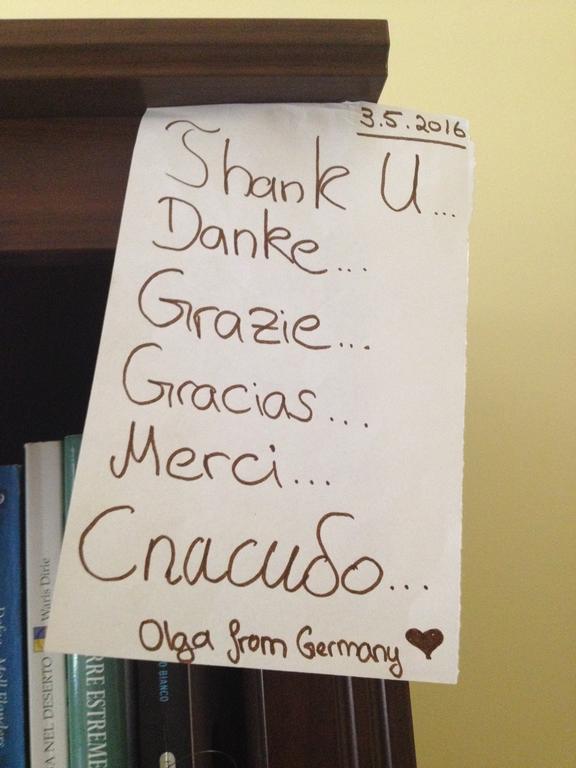 3.5.2016
Thank U...
Danke...
Grazie...
Gracias...
Merci...
Спасибо...
Olga from Germany ♥
Moll Flanders
NEL DESERTO Waris Dirie
RRE ESTREME
BIANCO